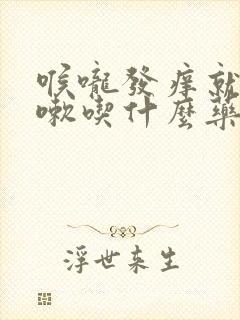 喉嚨發痒就
嗽喫什麼藥
浮世来生